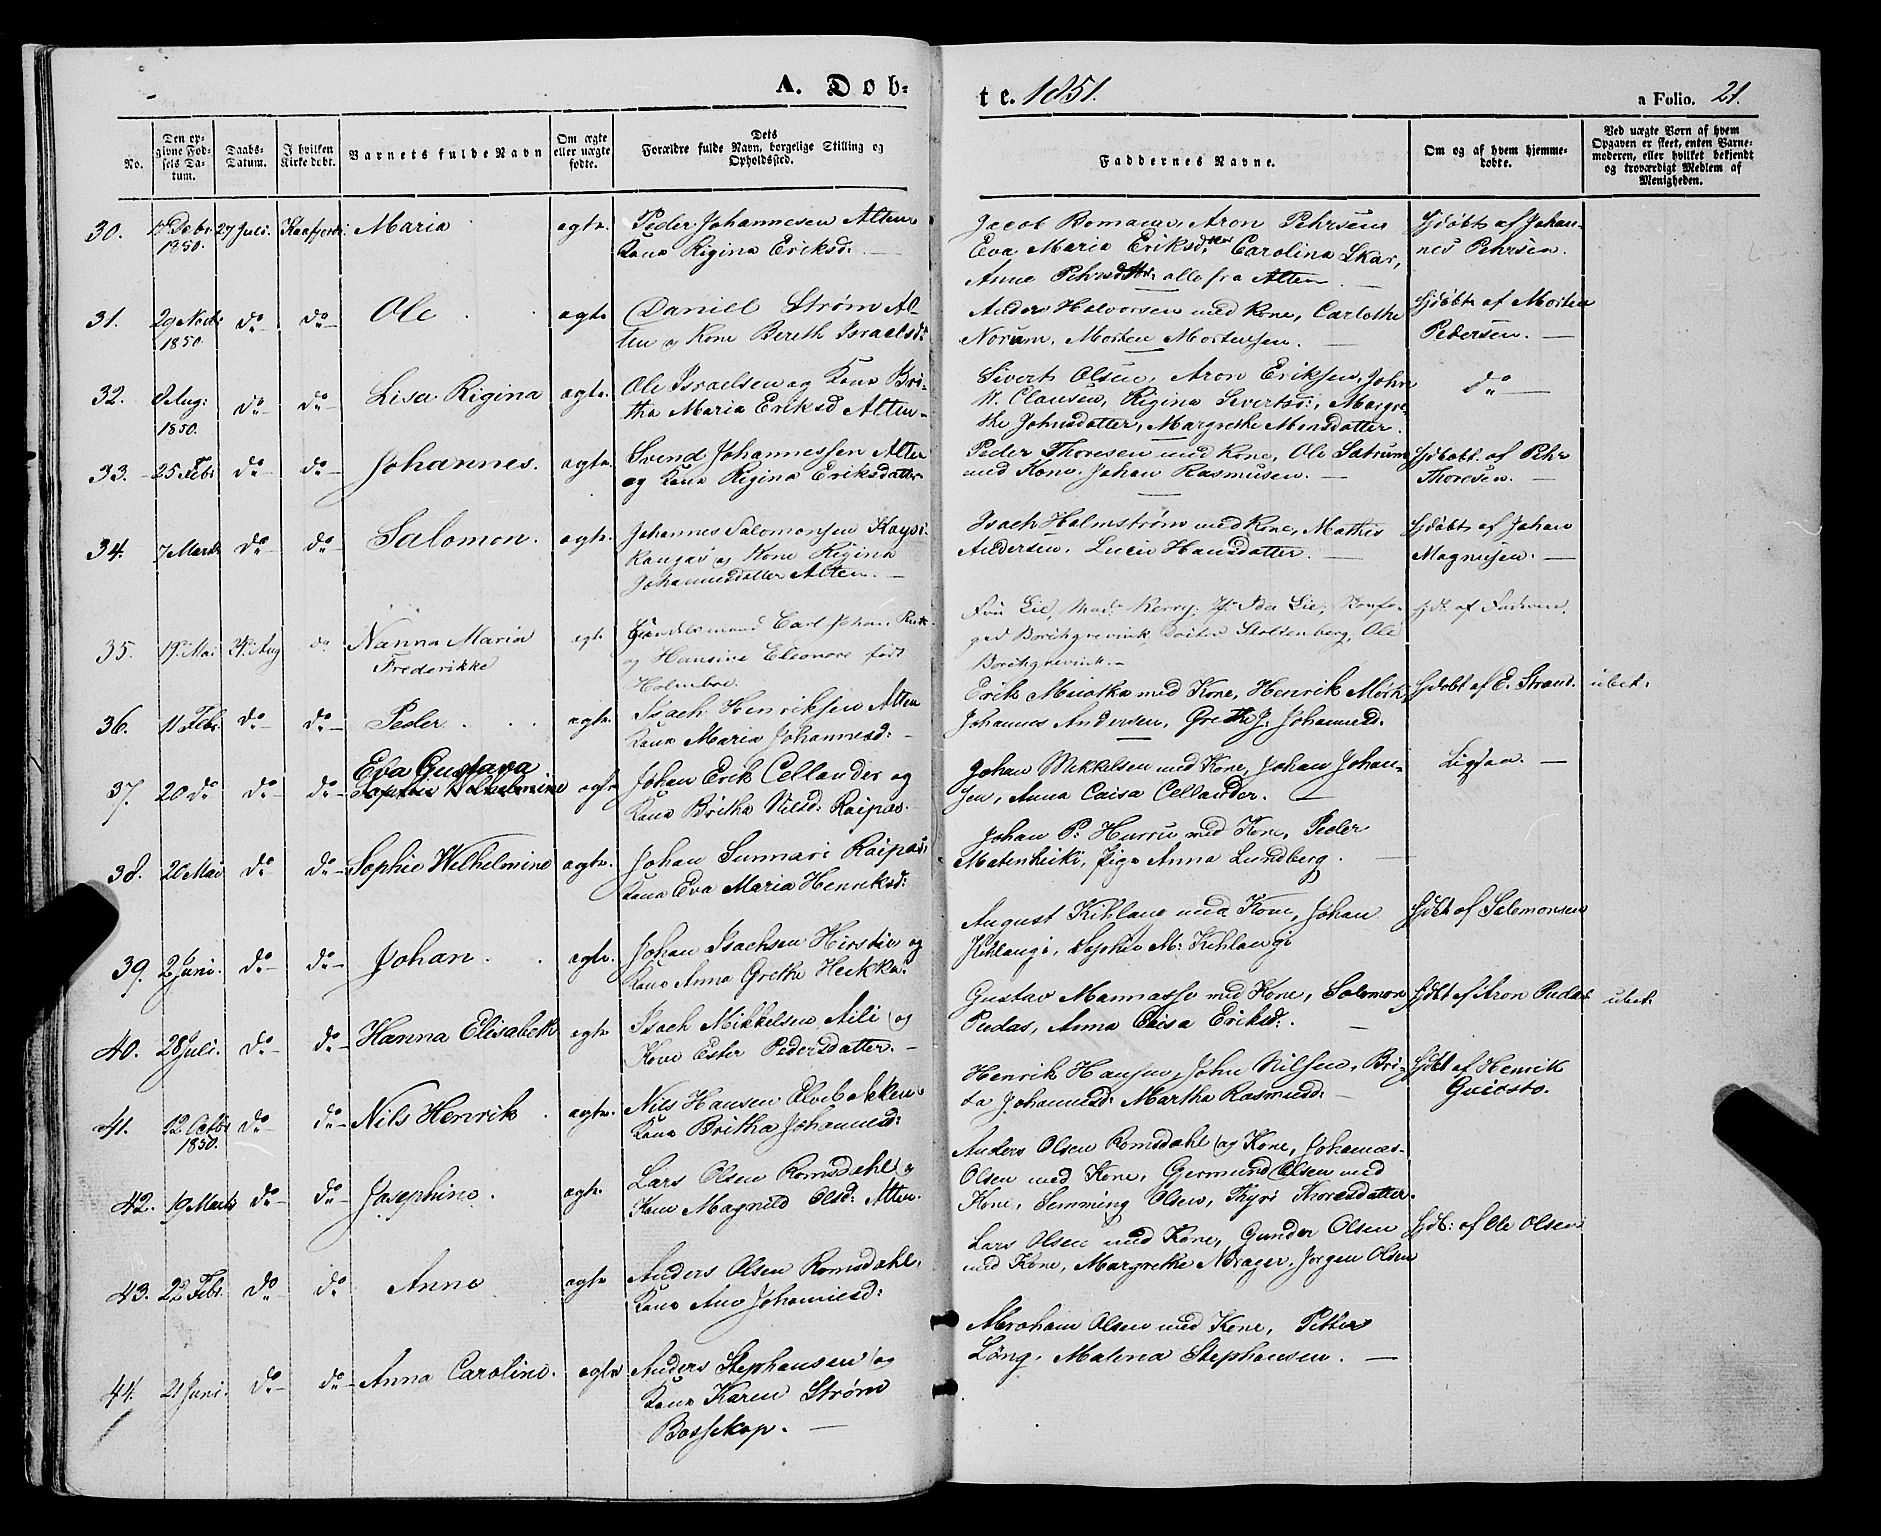 A. Døb-
te. 1851.
a Folio. 21.
No.
Den opgivne Fødsels Datum.
Daabs-Datum.
I hvilken Kirke døbt.
Varnets fulde Navn
Om ægte eller uægte fødte.
Dets Forældre fulde Navn, borgelige Stilling og Opholdssted.
Faddernes Navne.
Om og af hvem hjemmedøbte.
Ved uægte Børn af hvem Opgaven er skeet, enten Barnemoderen, eller hvilket bekjendt og troværdigt Medlem af Menigheden.
30. Decbr 27 Juli. Kaafjord. Maria ægte. Peder Johannesen Alten
1850. Kone Rigina Eriksd:
Jacob Aron Pehrsen
Eva Maria Eriksd: Carolina Skar,
Anne alle fra Alten
Hjdøbt af Johannes Pehrsen.
31. 29 Novbr do do Ole ægte Daniel Strøm Al-
1850. ten og Kone Bereth Israelsd:
Anders Halvorsen med Kone, Carlothe
Norum, Morten Mortensen.
Hjdøbt af Morten
Pedersen.
32. Aug: do do Lisa Rigina ægte. Ole Israelsen og Kone Bri-
1850. tha Maria Eriksd Alten
Sivert Olsen, Aron Eriksen, John
Clausen, Rigina Sivertsd:, Margre-
the Johnsdatter, Margrethe Monsdatter.
do
33. 25 Febr do do Johannes. ægte. Svend Johannessen Alten
og Kone Rigina Eriksdatter
Peder Thoresen med Kone, Ole
med Kone, Johan Rasmusen.
Hjdøbt. af Pehr
Thoresen.
34. 7 Marts do do Salomon. ægte. Johannes Salomonsen
og Kone Rigina
Johannesdatter Alten.
Isach Holmstrøm med Kone, Mathis
Andersen, Lucie Hansdatter.
Hjdøbt af Johan
Magnusen.
35. 19. Mai Aug do Nanna Maria ægte Handelsmand Carl Johan
Frederikke og Hansine Eleonore født
Fru Lie, Mad. Kerry, Ida Lie,
Borchgrevink, Stoltenberg, Ole
Borchgrevink.
hjdt. af Faderen.
36. 11 Febr. do do Peder ægte. Isach Henriksen Alten
Kone Maria Johannesd:
Erik Muotka med Kone, Henrik Mørk,
Johannes Andersen, Grethe J: Johannesd:
Hjdøbt af E. Strand. ubet.
37. 20 do do do Eva Gustava ægte Johan Erik Cellander og
Sophie Wilhelmine Kone Britha Nilsd: Raipas.
Johan Mikkelsen med Kone, Johan Johan-
sen, Anna Caisa Cellander.
38. 20 Mai do do Sophie Wilhelmine ægte. Johan Sunnari Raipas
Kone Eva Maria Henriksd:
Johan P: Hurru med Kone, Peder
Matenheiki, Pige Anna Lundberg.
39. 2 Juni. do do Johan. ægte. Johan Isachsen og
Kone Anna Grethe Heikka.
August Kihlang med Kone, Johan
Kihlangi, Sophie M: Kihlangi
Hjdbt af Salomonsen
40. 28 Juli. do do Hanna Elisabeth ægte Isach Mikkelsen Aili og
Kone Ester Pedersdatter.
Gustav Mannasse med Kone, Salomon
Pudas, Anna Caisa Eriksd:
Hjdbt af Aron Pudas ubet.
41. 12 Octbr do do Nils Henrik ægte. Nils Hansen Elvebakken
1850. Kone Britha Johannesd:
Henrik Hansen, John Nilsen, Bri-
ta Johannesd: Martha Rasmusd:
Hjdbt af Henrik
42. 19 Marts do do Josephine. ægte. Lars Olsen Romsdahl og
Kone Magnild Olsd: Alten.
Anders Olsen Romsdahl og Kone, Johannes
Olsen med Kone, Germund Olsen med
Kone, Semming Olsen, Thoresdatter.
43. 22 Febr. do do Anne ægte Anders Olsen Romsdahl,
Kone Ane Johannesd:
Lars Olsen med Kone, Gunder Olsen
med Kone, Margrethe Jørgen Olsen
Hjdb: af Ole Olsen
44. 21 Juni. do do Anna Caroline. ægte Anders Stephansen og
Kone Karen Strøm
Bossekop.
Abraham Olsen med Kone, Petter
Løng, Malena Stephansen.